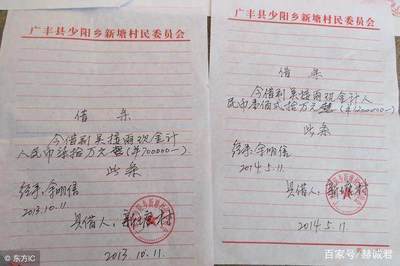 广丰县少阳乡新塘村民委员会
借条
今借到吴接雨现金计
人民币柒拾万元整(¥700000—)
此条
经手:余明信
2013.10.11.
具借人:新塘村
2013.10.11
广丰县少阳乡新塘村民委员会
借条
今借到吴接雨现金计人
民币壹佰弍拾万元整(¥1200000—)
此条
经手:余明信
2014.5.11.
具借人:新塘村
2014.5.11
© 东方IC
百家号/赫诚君